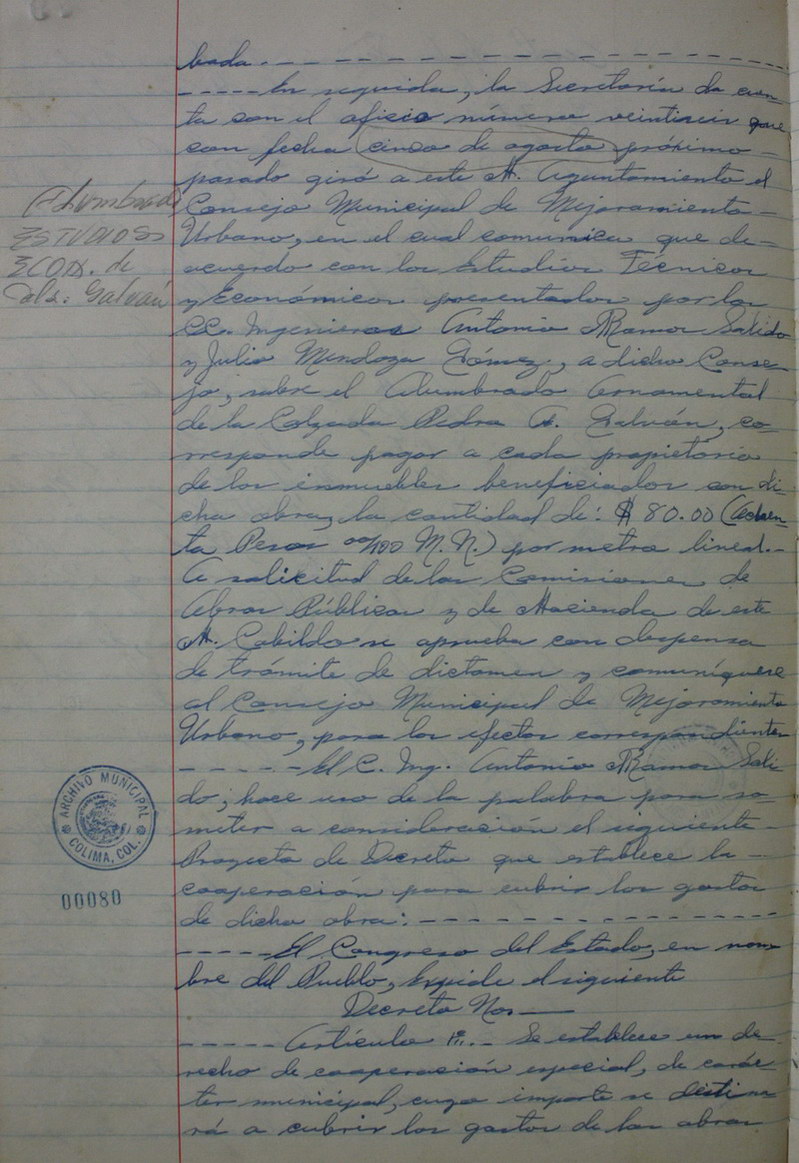 bada.- - - - - - - - - - - - - - - - - -
- - - - -En seguida, la Secretaría da cuen-
ta con el oficio número veintiseis que
con fecha cinco de agosto próximo
pasado giró a este H. Ayuntamiento el
Consejo Municipal de Mejoramiento
Urbano, en el cual comunica que de-
acuerdo con los Estudios Técnicos
y Económicos presentados por los
CC. Ingenieros Antonio Ramos Salido
y Julio Mendoza Gómez, a dicho Conse-
jo, sobre el Alumbrado Ornamental
de la Calzada Pedro A. Galván, co-
rresponde pagar a cada propietario
de los inmuebles beneficiados con di-
cha obra, la cantidad de: $ 80.00 (Ochen-
ta Pesos 00/100 M.N.) por metro lineal.-
A solicitud de las Comisiones de
Obras Públicas y de Hacienda de este
H. Cabildo se aprueba con dispensa
de trámite de dictamen y comuníquese
al Consejo Municipal de Mejoramiento
Urbano, para los efectos correspondientes
- - - - - -El C. Ing. Antonio Ramos Sali-
do; hace uso de la palabra para so-
meter a consideración el siguiente
Proyecto de Decreto que establece la-
cooperación para cubrir los gastos
de dicha obra:- - - - - - - - - - - - - -
- - - - -El Congreso del Estado, en nom-
bre del Pueblo, Expide el siguiente
Decreto No.
- - - - - Artículo 1o.- Se establece un de-
recho de cooperación especial, de carác-
ter municipal, cuyo importe se destina
rá a cubrir los gastos de las obras
Alumbrado
ESTUDIOS
ECON. de
Calz. Galván
ARCHIVO MUNICIPAL
COLIMA, COL.
00080